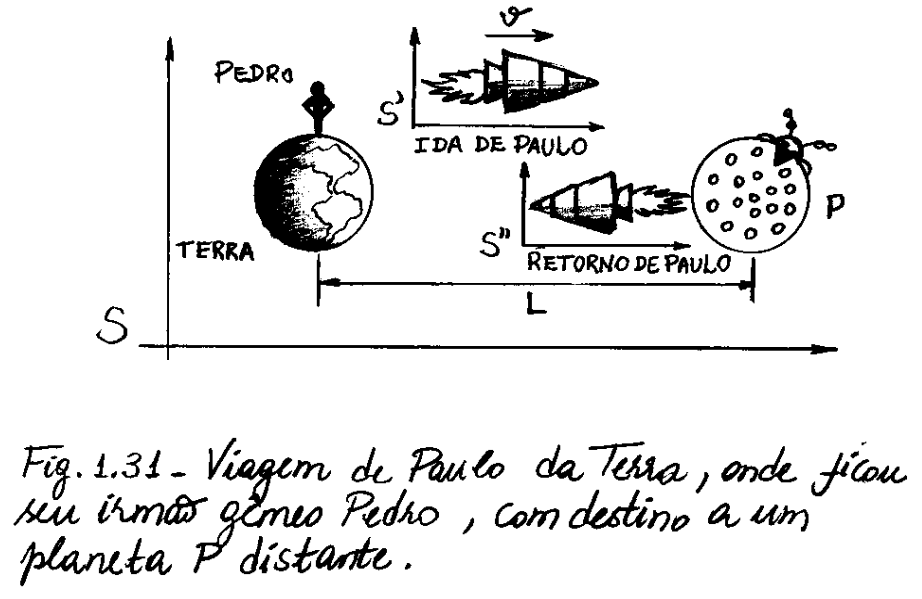 v
PEDRO
S'
IDA DE PAULO
P
TERRA
S"
RETORNO DE PAULO
L
S
Fig. 1.31 - Viagem de Paulo da Terra, onde ficou
seu irmão gêmeo Pedro, com destino a um
planeta P distante.